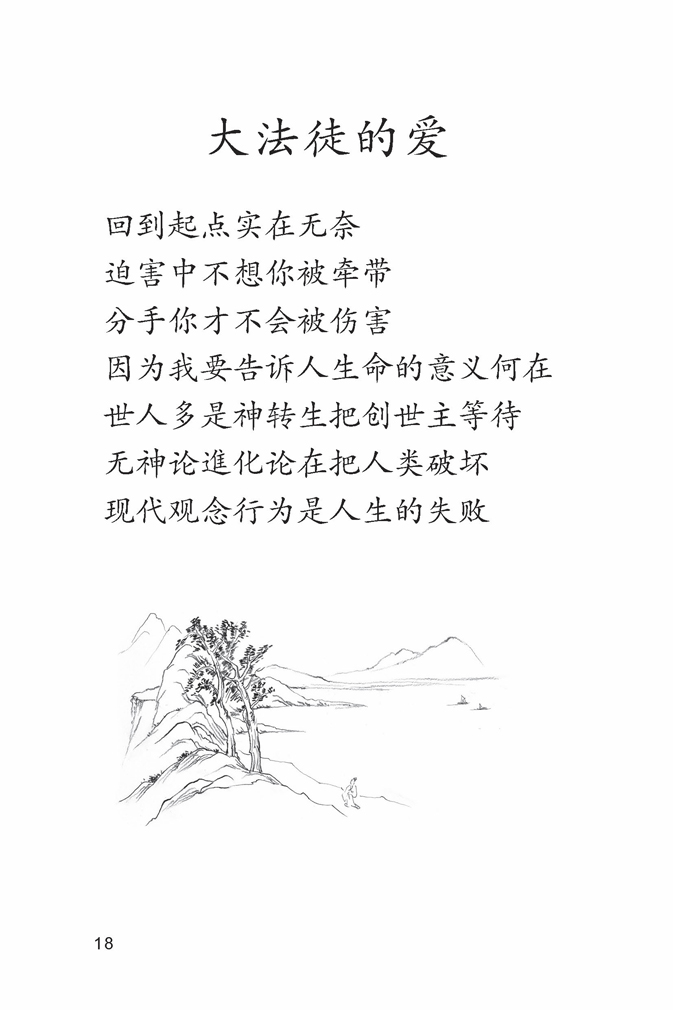 大法徒的爱
回到起点实在无奈
迫害中不想你被牵带
分手你才不会被伤害
因为我要告诉人生命的意义何在
世人多是神转生把创世主等待
无神论進化论在把人类破坏
现代观念行为是人生的失败
18